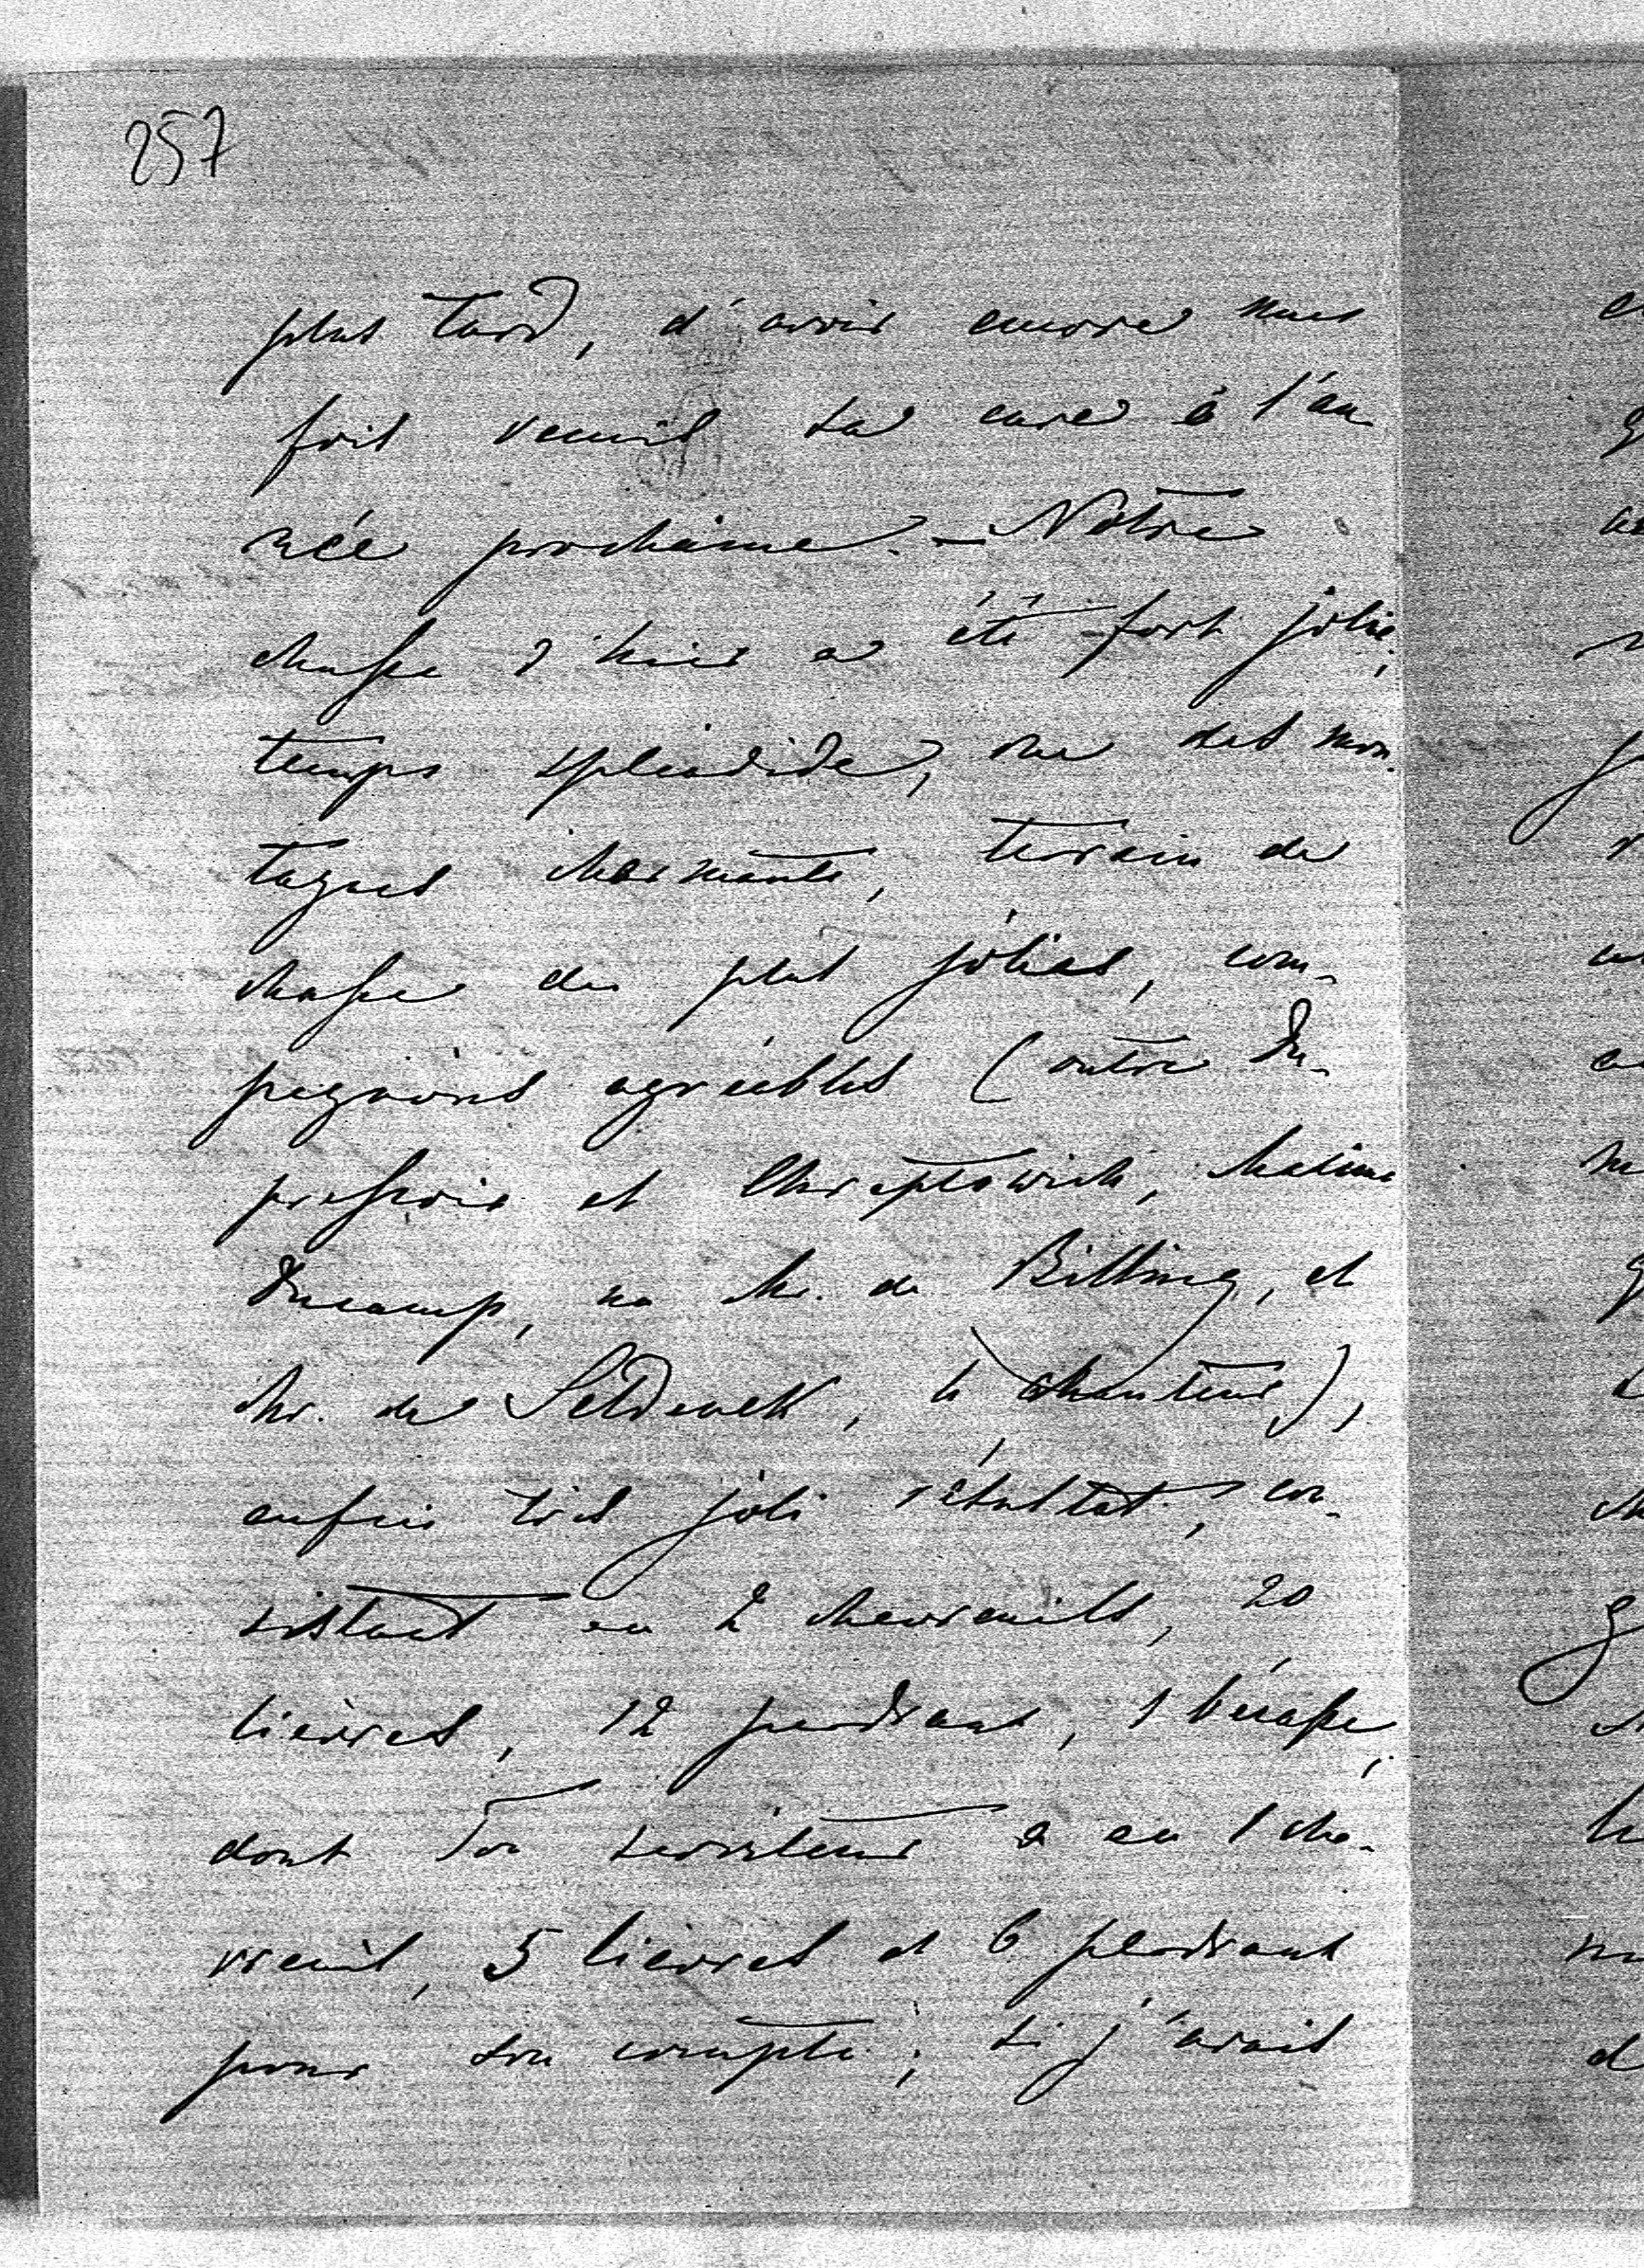 257
plus tard, d'avoir encore une
fois remis sa cure à l'an-
née prochaine. — Nôtre
chasse d'hier a été fort jolie;
temps splendide, vue des mon-
tagnes charmante, terrain de
chasse des plus jolies, com-
pagnons agréables (outre Du-
pressoir et Chreptowich, Maxime
Ducamp, un Mr. de Billing, et
Mr. de Seldeneck, le chanteur),
enfin très joli résultat, con-
sistant en 2 chevreuils, 20
lièvres, 12 perdreaux, 1 bécasse,
dont Ton serviteur a eu 1 che-
vreuil, 5 lièvres et 6 perdreaux
pour son compte; si j'avais